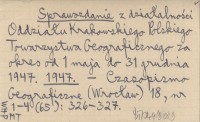 Sprawozdanie z działalności
Oddziału Krakowskiego Polskiego
Towarzystwa Geograficznego za
okres od 1 maja do 31 grudnia
1947. 1947. Czasopismo
Geograficzne (Wrocław) 18, nr
1-4 (65): 326-327.